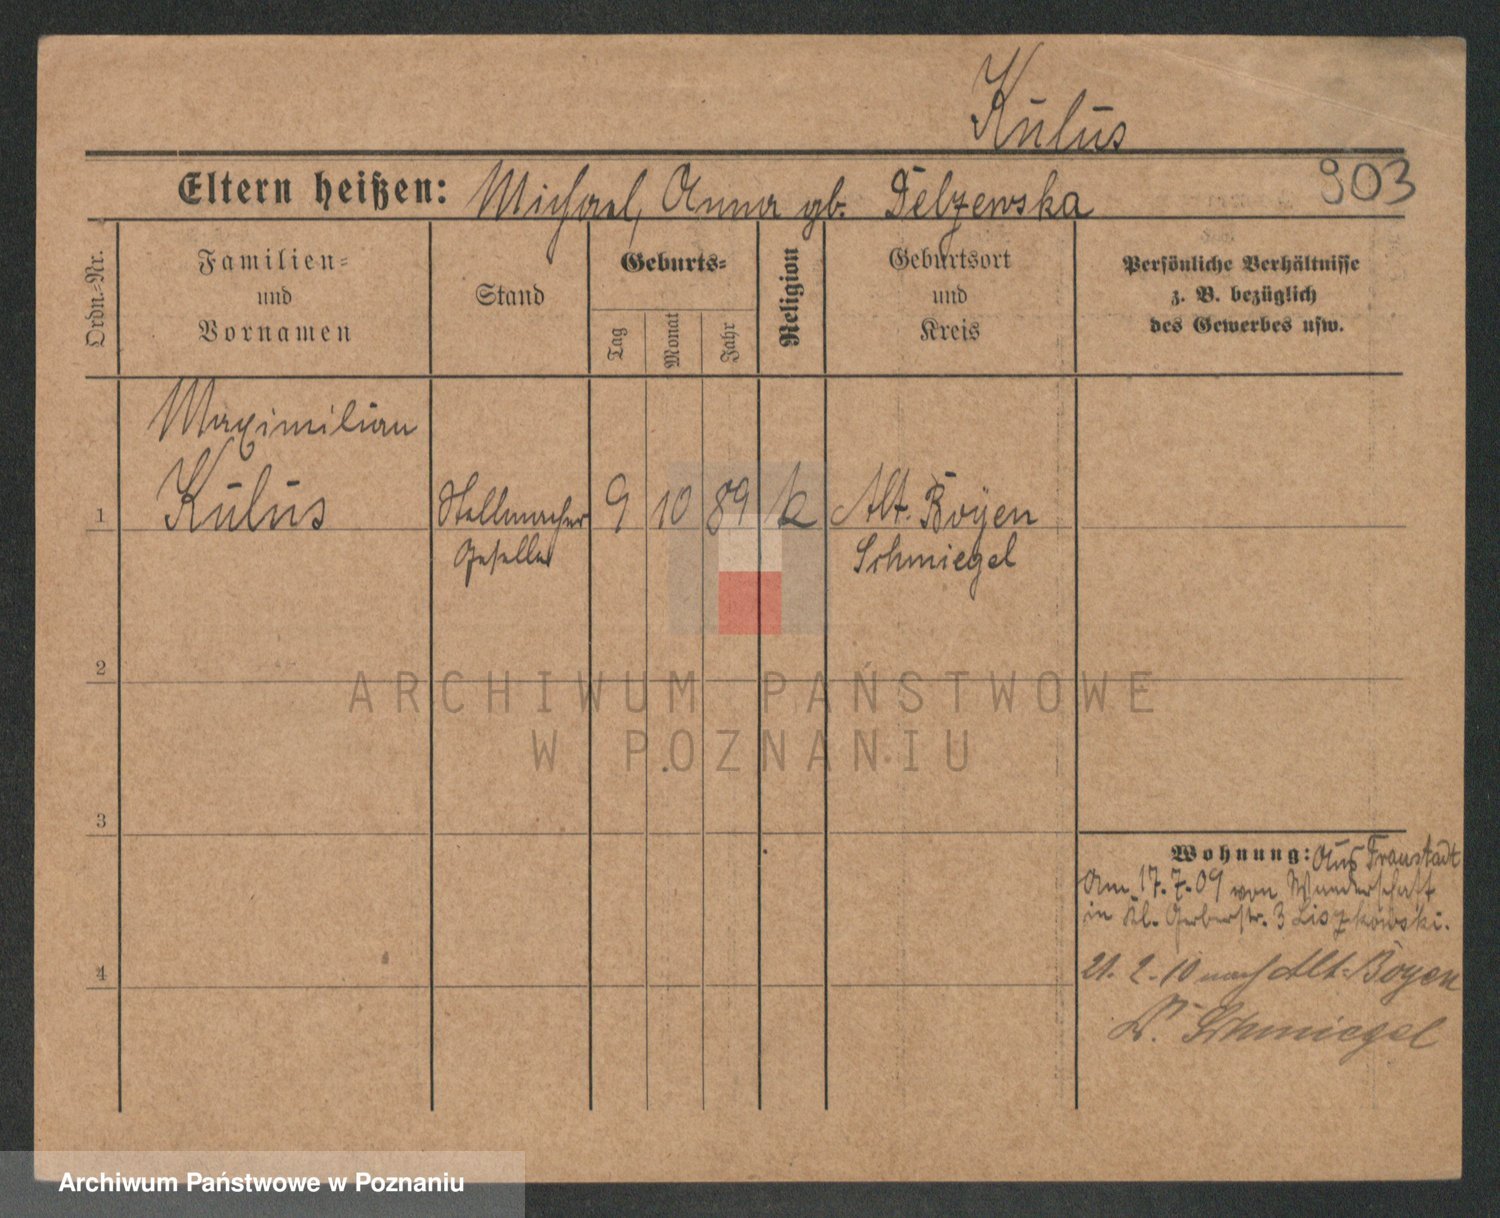 Kulus
Eltern heißen: Michael, Anna gb. Pelzewska
903
Ordn.-Nr.
Familien-
und
Vornamen
Stand
Geburts-
Tag
Monat
Jahr
Religion
Geburtsort
und
Kreis
Persönliche Verhältnisse
z. B. bezüglich
des Gewerbes usw.
Maximilian
1 Kulus Stellmacher 9 10 89 k Alt-Boyen
Geselle Schmiegel
2
3
4
Wohnung: Aus Fraustadt
Am 17.7.09 von Wanderschaft
in Kl. Gerberstr. 3 Liszkowski.
21.2.10 nach Alt-Boyen
Kr. Schmiegel
ARCHIWUM PAŃSTWOWE
W POZNANIU
Archiwum Państwowe w Poznaniu